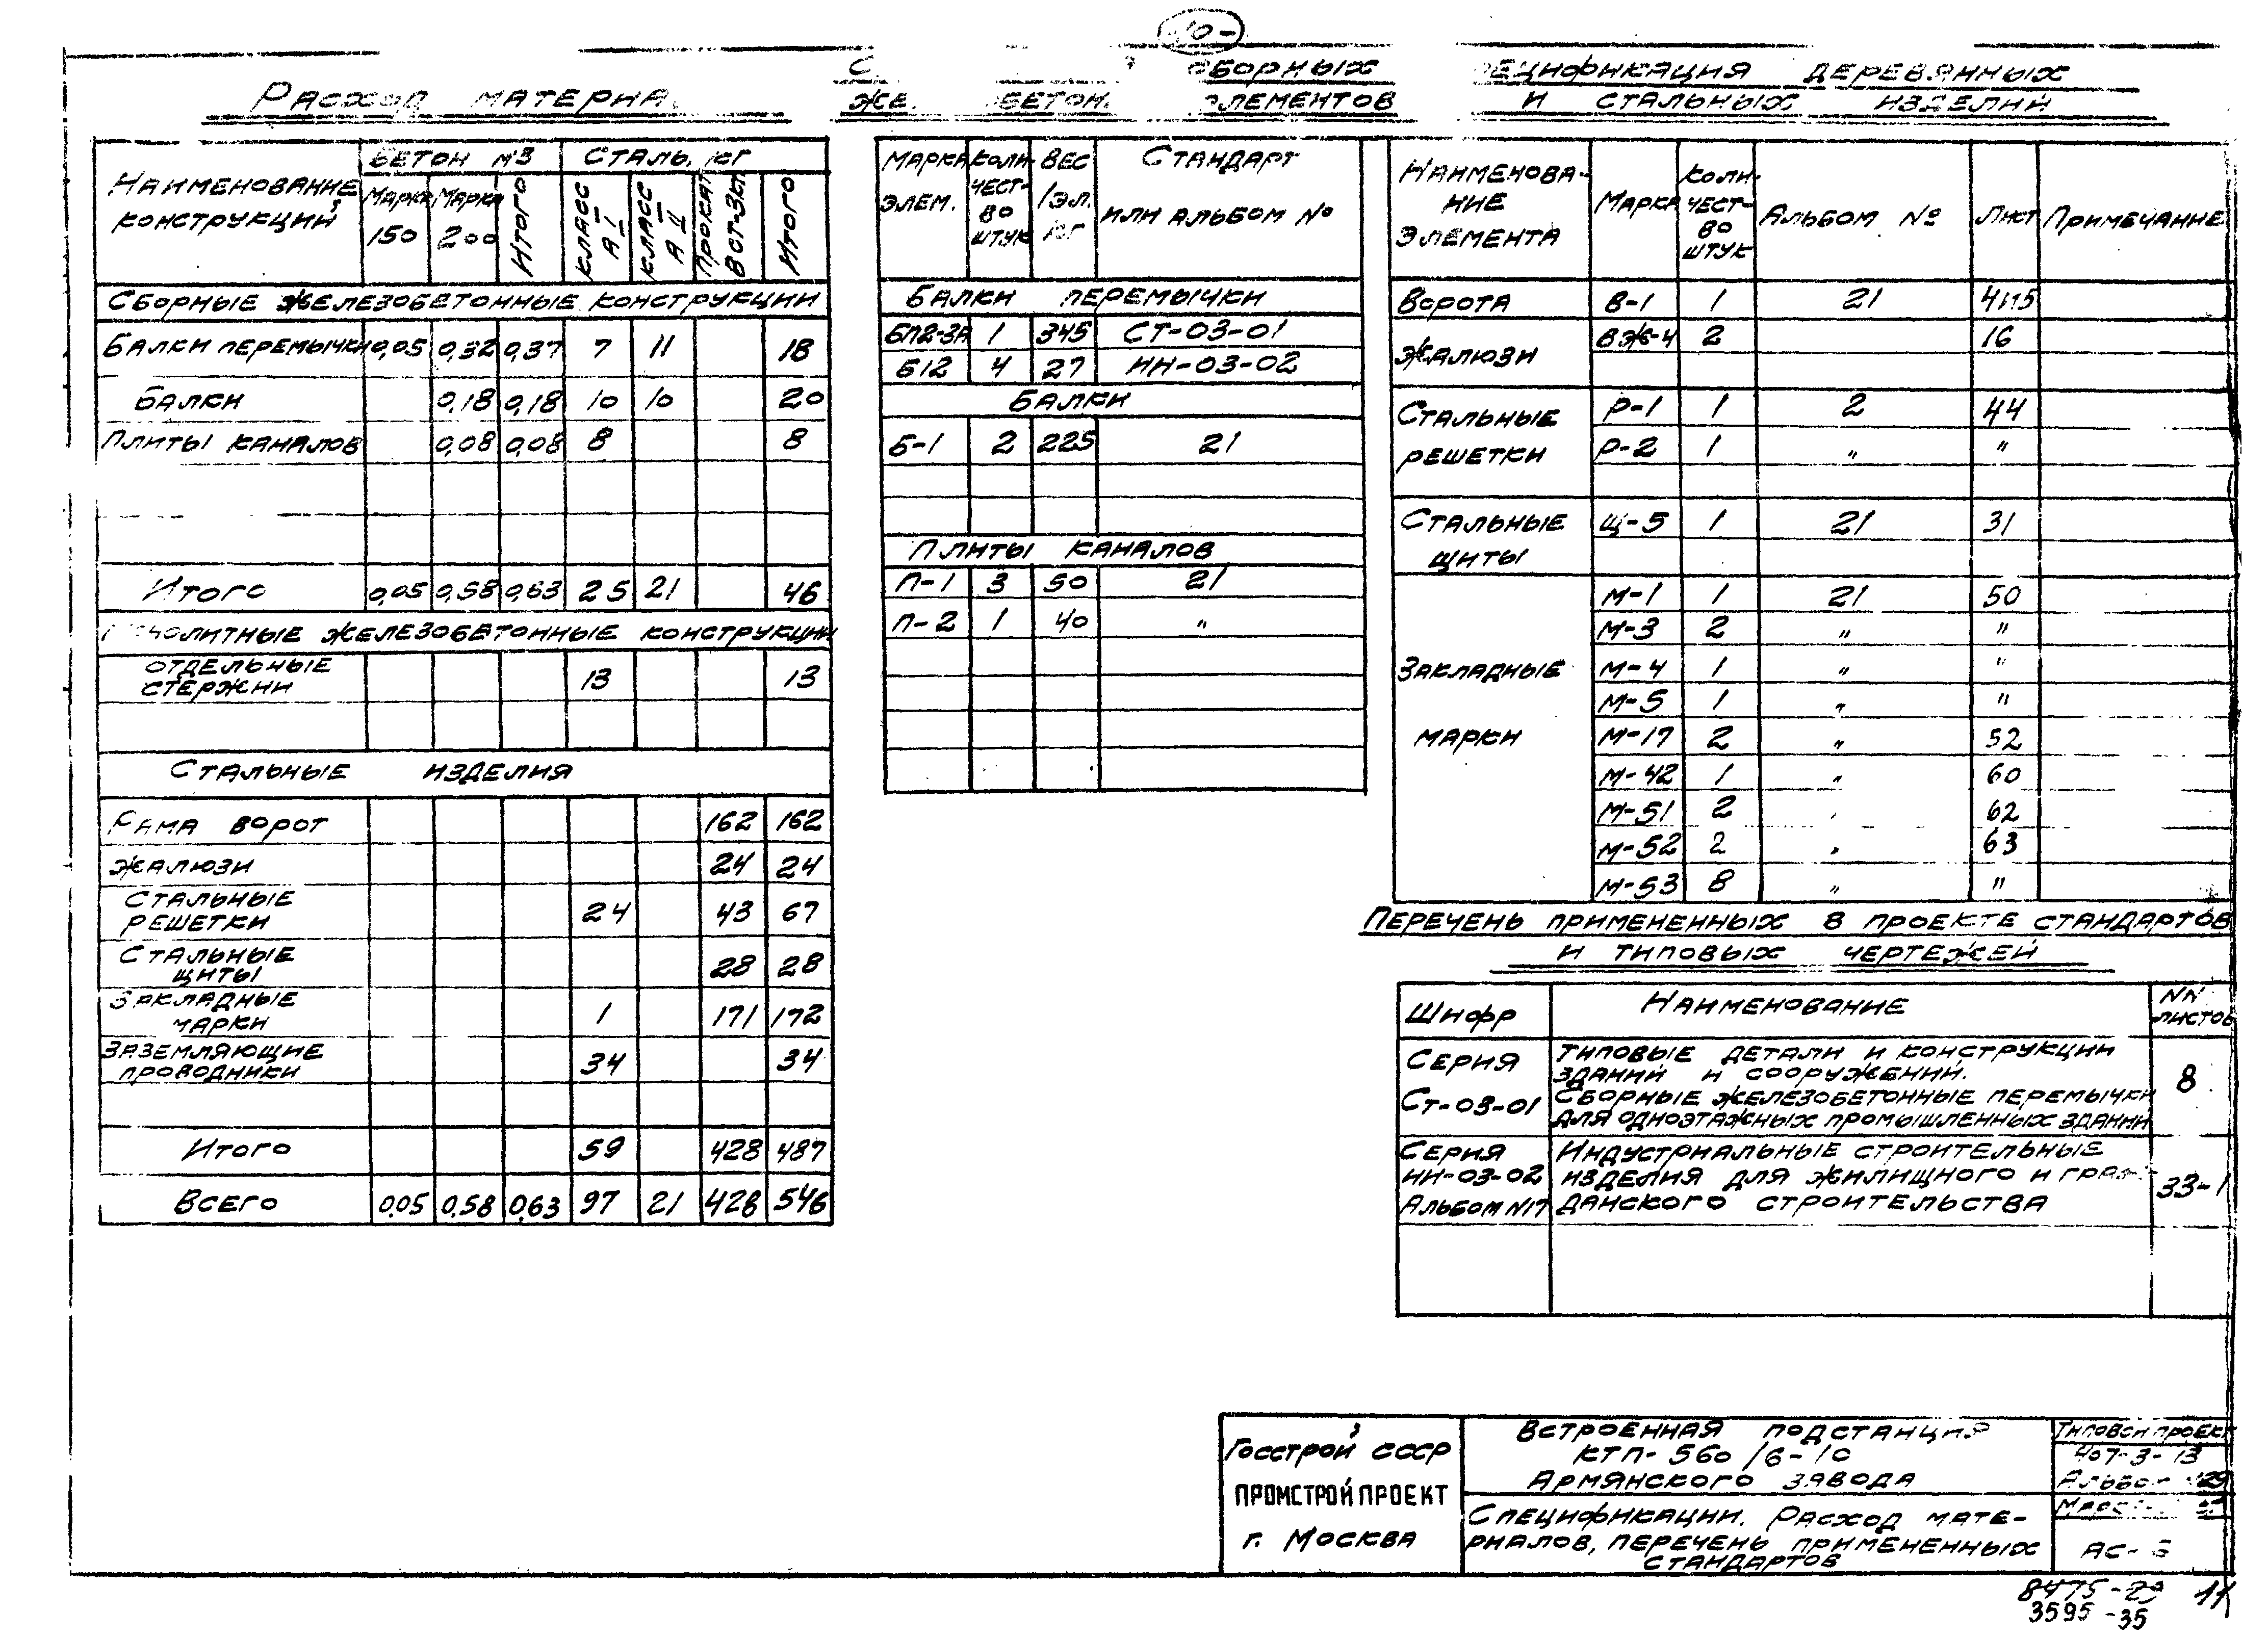 10-
Расход
сборных
элементов
деревянных
и стальных изделий
Наименование конструкций | Бетон м3 | Сталь, кг
Марка 150 | Марка 200 | Итого | Класс А I | Класс А II | Прокат | Итого
Сборные железобетонные конструкции
Балки перемычки 0,05 0,32 0,37 7 11 18
Балки 0,18 0,18 10 10 20
Плиты каналов 0,08 0,08 8 8
Итого 0,05 0,58 0,63 25 21 46
железобетонные конструкции
отдельные стержни 13 13
Стальные изделия
Рама ворот 162 162
Жалюзи 24 24
Стальные решетки 24 43 67
Стальные щиты 28 28
Закладные марки 1 171 172
Заземляющие проводники 34 34
Итого 59 428 487
Всего 0,05 0,58 0,63 97 21 428 546
Марка элем. | Количество штук | Вес 1 эл. кг | Стандарт или альбом №
Балки перемычки
БП2-3А 1 345 СТ-03-01
Б12 4 27 ИИ-03-02
Балки
Б-1 2 225 21
Плиты каналов
П-1 3 50 21
П-2 1 40 "
Наименование элемента | Марка | Количество штук | Альбом № | Лист | Примечание
Ворота В-1 1 21
Жалюзи ВЖ-4 2 16
Стальные решетки Р-1 1 2 44
Р-2 1 " "
Стальные щиты Щ-5 1 21 31
Закладные марки
М-1 1 21 50
М-3 2 " "
М-4 1 " "
М-5 1 " "
М-17 2 " 52
М-42 1 " 60
М-51 2 62
М-52 2 " 63
М-53 8 " "
Перечень примененных в проекте стандартов
и типовых чертежей
Шифр | Наименование | NN листов
Серия Ст-03-01 | Типовые детали и конструкции
зданий и сооружений.
Сборные железобетонные перемычки
для одноэтажных промышленных зданий | 8
Серия ИИ-03-02 Альбом N17 | Индустриальные строительные
изделия для жилищного и граж-
данского строительства | 33-1
Госстрой СССР
ПРОМСТРОЙПРОЕКТ
г. Москва
Встроенная подстанция
КТП-560/6-10
Армянского завода
Спецификации. Расход мате-
риалов, перечень примененных
стандартов
Типовой проект
407-3-13
АС-
8475-29 11
3595-35